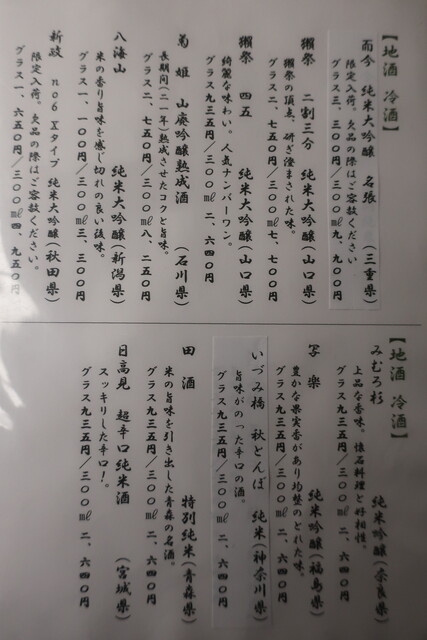 【地酒 冷酒】
而今 純米大吟醸 名張 (三重県)
限定入荷。欠品の際はご容赦ください
グラス三、三〇〇円/三〇〇㎖九、九〇〇円
獺祭 二割三分 純米大吟醸(山口県)
獺祭の頂点、研ぎ澄まされた味。
グラス二、七五〇円/三〇〇㎖七、七〇〇円
獺祭 四五 純米大吟醸(山口県)
綺麗な味わい。人気ナンバーワン。
グラス九三五円/三〇〇㎖二、六四〇円
菊姫 山廃吟醸熟成酒 (石川県)
長期間(二一年)熟成させたコクと旨味。
グラス二、七五〇円/三〇〇㎖八、二五〇円
八海山 純米大吟醸(新潟県)
米の香り旨味を感じ切れの良い後味。
グラス一、一〇〇円/三〇〇㎖三、三〇〇円
新政 no6 Xタイプ 純米大吟醸(秋田県)
限定入荷。欠品の際はご容赦ください。
グラス一、六五〇円/三〇〇㎖四、九五〇円
【地酒 冷酒】
みむろ杉 純米吟醸(奈良県)
上品な香味。懐石料理と好相性。
グラス九三五円/三〇〇㎖二、六四〇円
写楽 純米吟醸(福島県)
豊かな果実香があり均整のとれた味。
グラス九三五円/三〇〇㎖二、六四〇円
いづみ橋 秋とんぼ 純米(神奈川県)
旨味がのった辛口の酒。
グラス九三五円/三〇〇㎖二、六四〇円
田酒 特別純米(青森県)
米の旨味を引き出した青森の名酒。
グラス九三五円/三〇〇㎖二、六四〇円
日高見 超辛口純米酒 (宮城県)
スッキリした辛口!。
グラス九三五円/三〇〇㎖二、六四〇円